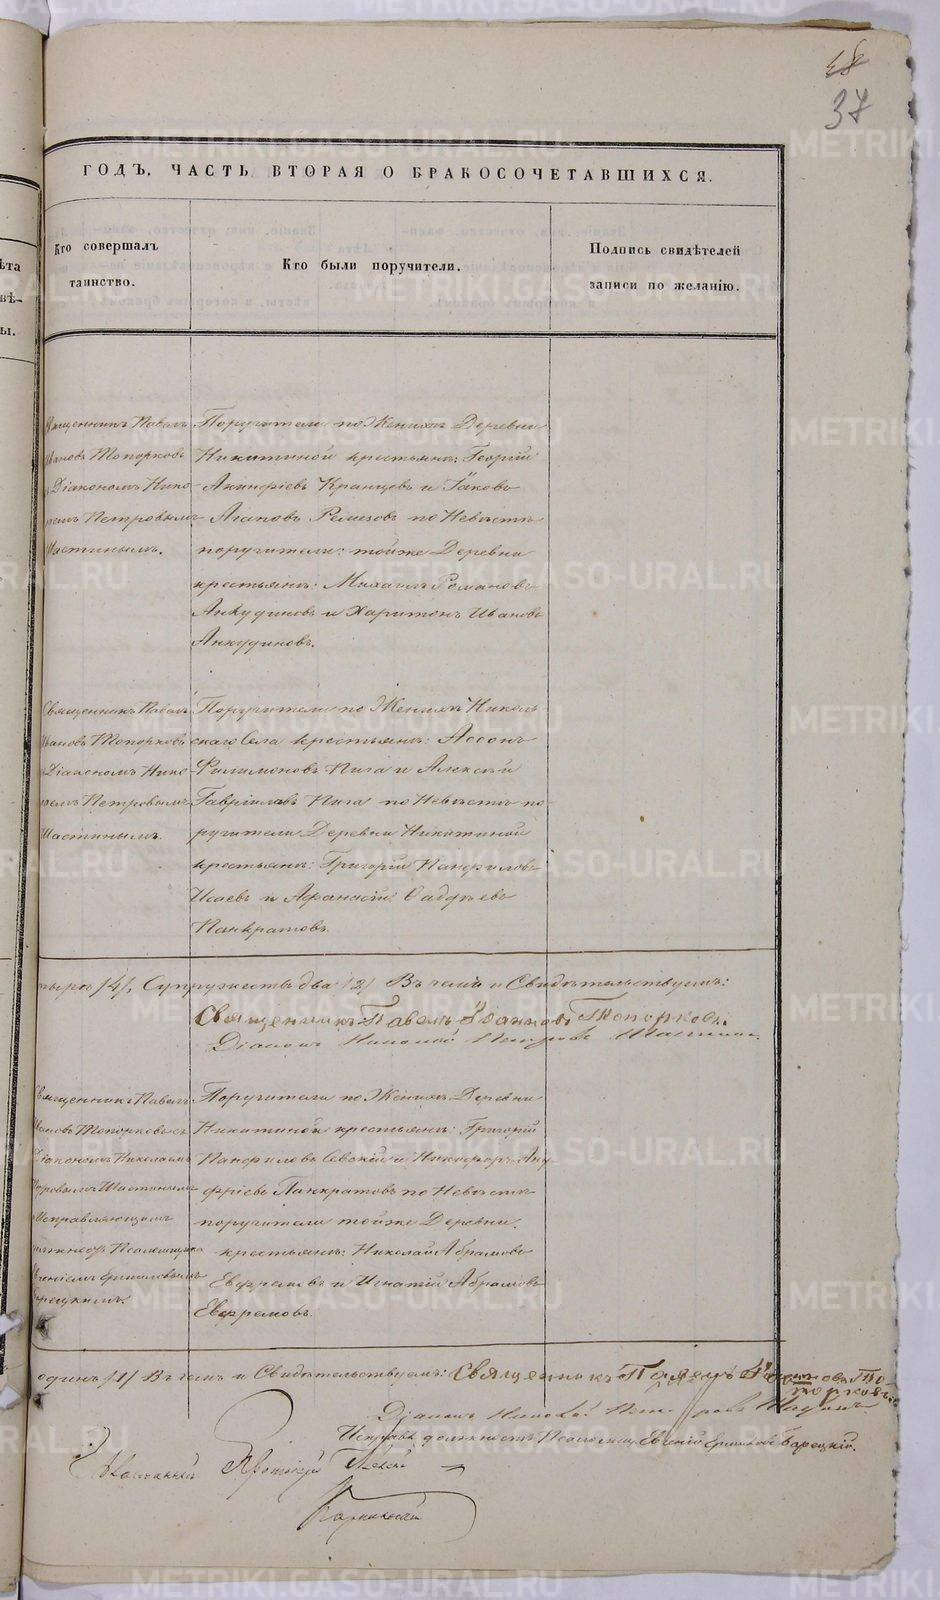 48
37
ГОДЪ, ЧАСТЬ ВТОРАЯ О БРАКОСОЧЕТАВШИХСЯ.
Кто совершалъ
таинство.
Кто были поручители.
Подпись свидѣтелей
записи по желанію.
Священникъ Павелъ
Ивановъ Топорковъ
Діакономъ Нико-
Петровымъ
Шастинымъ.
Поручители по Женихѣ Деревни
Никитиной крестьяне: Георгій
Акинфіевъ Кранцевъ и Іаковъ
Агаповъ Ремезовъ по Невѣстѣ
поручители: тойже Деревни
крестьяне: Михаилъ Романовъ
Анкудиновъ и Харитонъ Ивановъ
Анкудиновъ.
Священникъ Павелъ
Ивановъ Топорковъ
Діакономъ Нико-
Петровымъ
Шастинымъ.
Поручители по Женихѣ Николь-
скаго Села крестьяне:
Филимоновъ Пига и Алексѣй
Гавриловъ Пига по Невѣстѣ по-
ручители Деревни Никитиной
крестьяне: Григорій Панфиловъ
Исаевъ и Афанасій
Панкратовъ.
/4/, Супружествъ два /2/ Въ чемъ и Свидѣтельствуемъ:
Священникъ Павелъ Іоанновъ Топорковъ.
Діаконъ Николай Петровъ Шастинъ.
Священникъ Павелъ
Ивановъ Топорковъ съ
Діакономъ Николаемъ
Петровымъ Шастинымъ
Исправляющимъ
Поручители по Женихѣ Деревни
Никитиной крестьяне: Григорій
Панфиловъ и Никифоръ Ану-
фріевъ Панкратовъ по Невѣстѣ
поручители тойже Деревни,
крестьяне: Николай Абрамовъ
Евфремовъ и Игнатій Абрамовъ
Евфремовъ.
одинъ /1/ Въ чемъ и Свидѣтельствуемъ: Священникъ Павелъ Іоанновъ То-
порковъ.
Діаконъ Николай Петровъ Шастинъ
Исправ. должность Псаломщ. Евгеній Барецкій.
METRIKI.GASO-URAL.RU